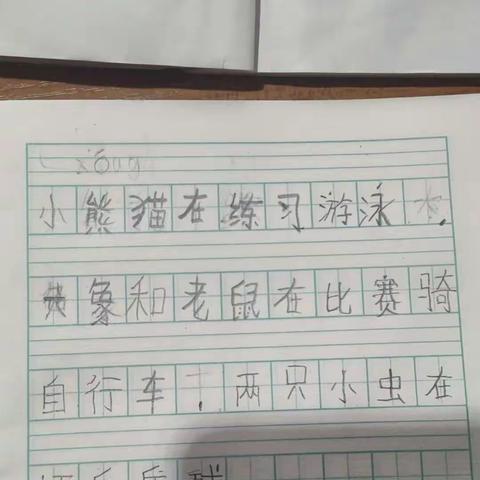 小熊猫在练习游泳.
象和老鼠在比赛骑
自行车.两只小虫在
乒乓球